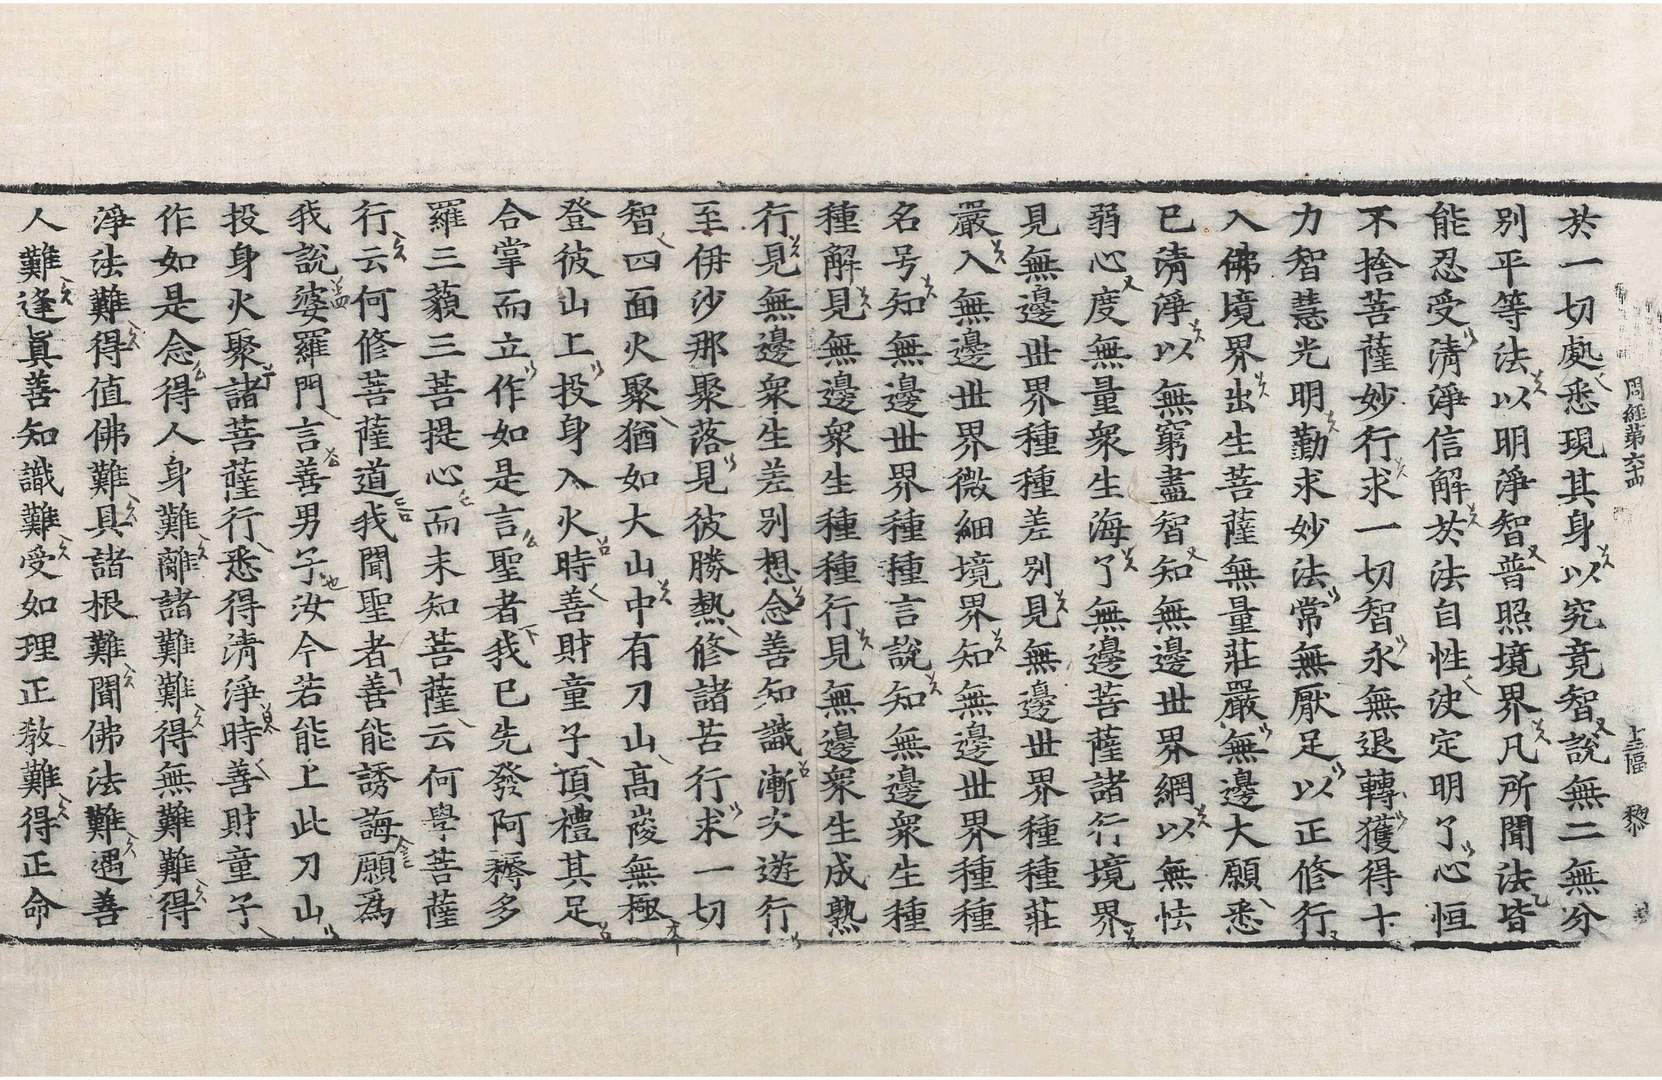 周經第六十四 十三幅 黎
於一切處悉現其身以究竟智說無二無分
別平等法以明淨智普照境界凡所聞法皆
能忍受清淨信解於法自性决定明了心恒
不捨菩薩妙行求一切智永無退轉獲得十
力智慧光明勤求妙法常無厭足以正修行
入佛境界出生菩薩無量莊嚴無邊大願悉
已清淨以無窮盡智知無邊世界網以無怯
弱心度無量衆生海了無邊菩薩諸行境界
見無邊世界種種差別見無邊世界種種莊
嚴入無邊世界微細境界知無邊世界種種
名号知無邊世界種種言說知無邊衆生種
種解見無邊衆生種種行見無邊衆生成熟
行見無邊衆生差別想念善知識漸次遊行
至伊沙那聚落見彼勝熱修諸苦行求一切
智四面火聚猶如大山中有刀山高峻無極
登彼山上投身入火時善財童子頂禮其足
合掌而立作如是言聖者我已先發阿耨多
羅三藐三菩提心而未知菩薩云何學菩薩
行云何修菩薩道我聞聖者善能誘誨願爲
我說婆羅門言善男子汝今若能上此刀山
投身火聚諸菩薩行悉得清淨時善財童子
作如是念得人身難離諸難難得無難難得
淨法難得值佛難具諸根難聞佛法難遇善
人難逢眞善知識難受如理正教難得正命